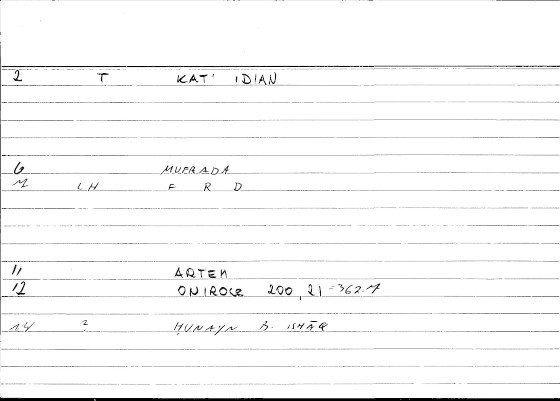 2 T KAT' IDIAN
6 MUFRADA
M LH F R D
11 ARTEM
12 ONIROCR 200,21 = 362.7
14 2 HUNAYN B. ISHĀQ